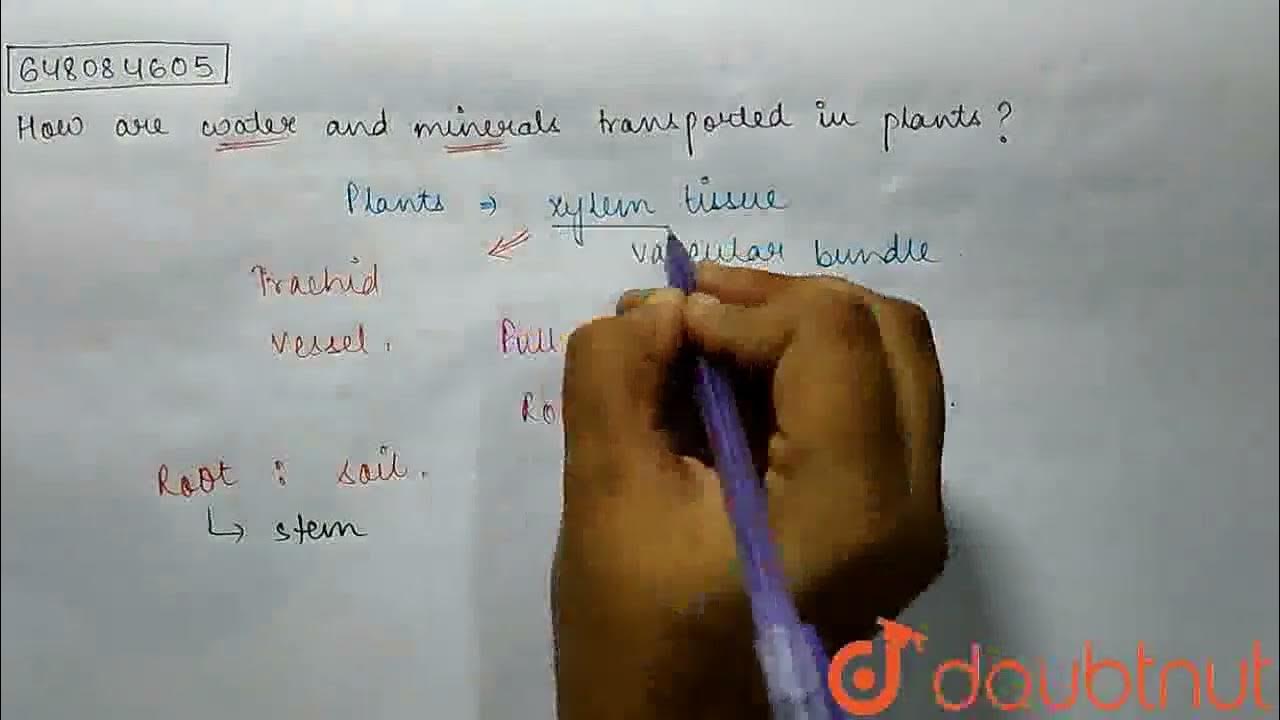 648084605
How are water and minerals transported in plants?
Plants ⇒ xylem tissue
bundle.
Trachid
Vessel.
Root : soil.
↳ stem
doubtnut